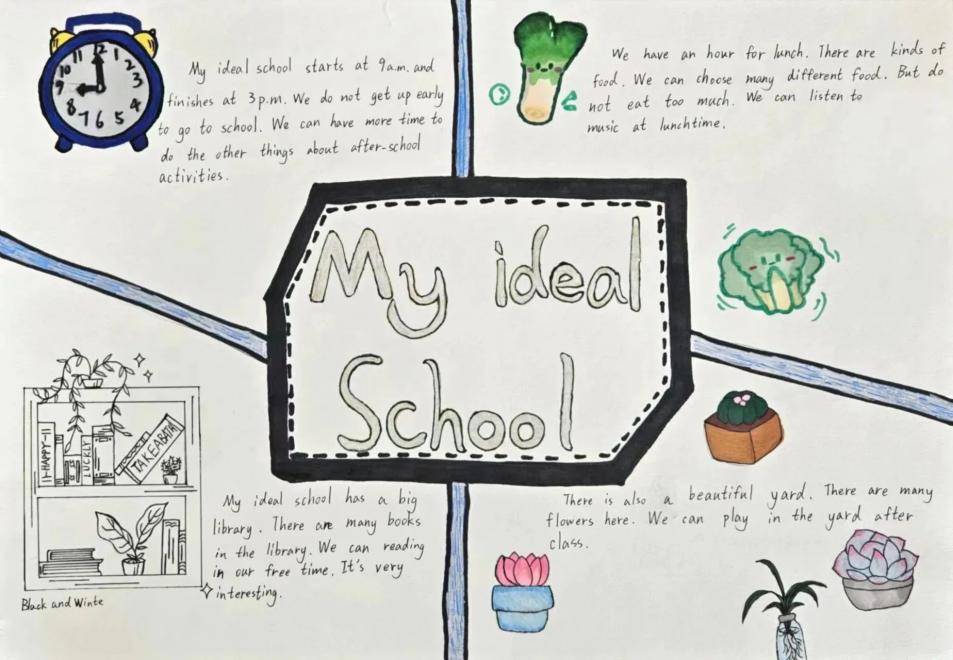 My ideal school starts at 9a.m. and
finishes at 3p.m. We do not get up early
to go to school. We can have more time to
do the other things about after-school
activities.
We have an hour for lunch. There are kinds of
food. We can choose many different food. But do
not eat too much. We can listen to
music at lunchtime.
12
1
2
3
4
5
6
7
8
9
10
11
My ideal
School
HAPPY
LUCKLY
TAKEABATM
Black and Winte
My ideal school has a big
library. There are many books
in the library. We can reading
in our free time. It's very
interesting.
There is also a beautiful yard. There are many
flowers here. We can play in the yard after
class.